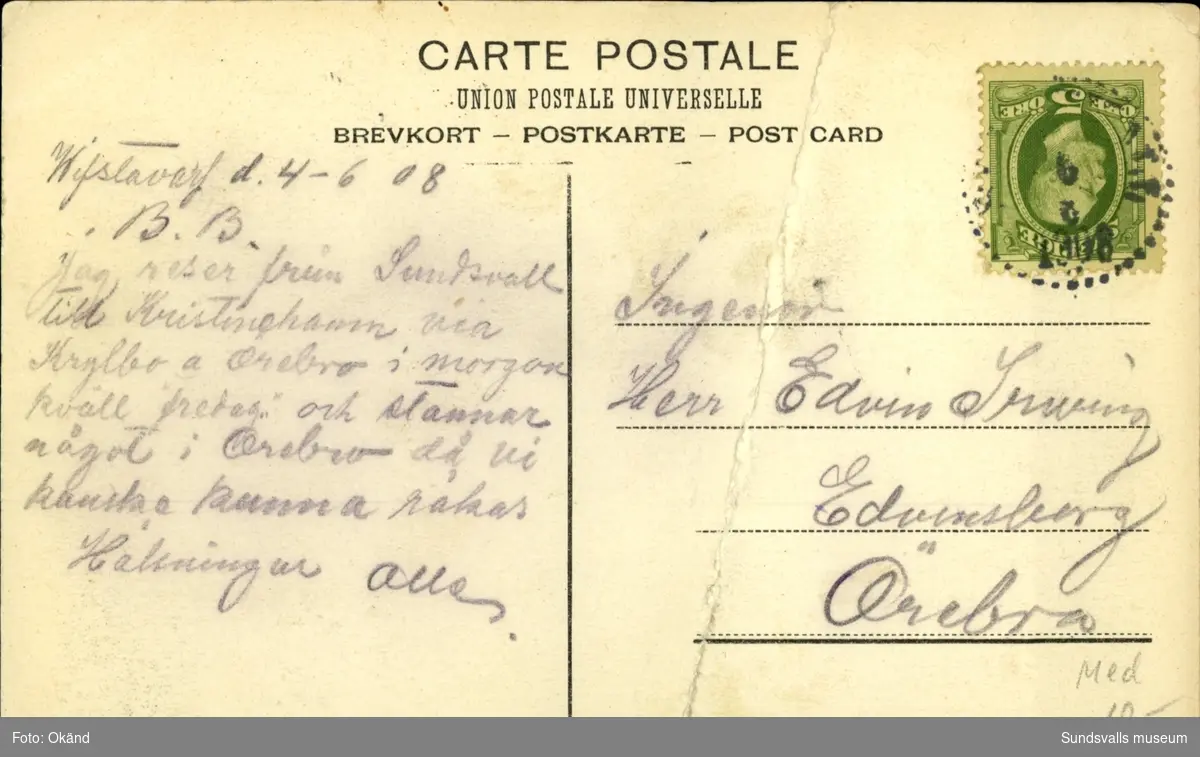 CARTE POSTALE
UNION POSTALE UNIVERSELLE
BREVKORT – POSTKARTE – POST CARD
Wifstavarf d. 4-6 08
B. B.
Jag reser från Sundsvall
till Kristinehamn via
Krylbo a Örebro i morgon
kväll fredag och stannar
något i Örebro då vi
kanske kunna råkas
Hälsningar Olle
Ingeniör
Herr Edvin Irwing
Edvinsberg
Örebro
Med
10-
Foto: Okänd
Sundsvalls museum